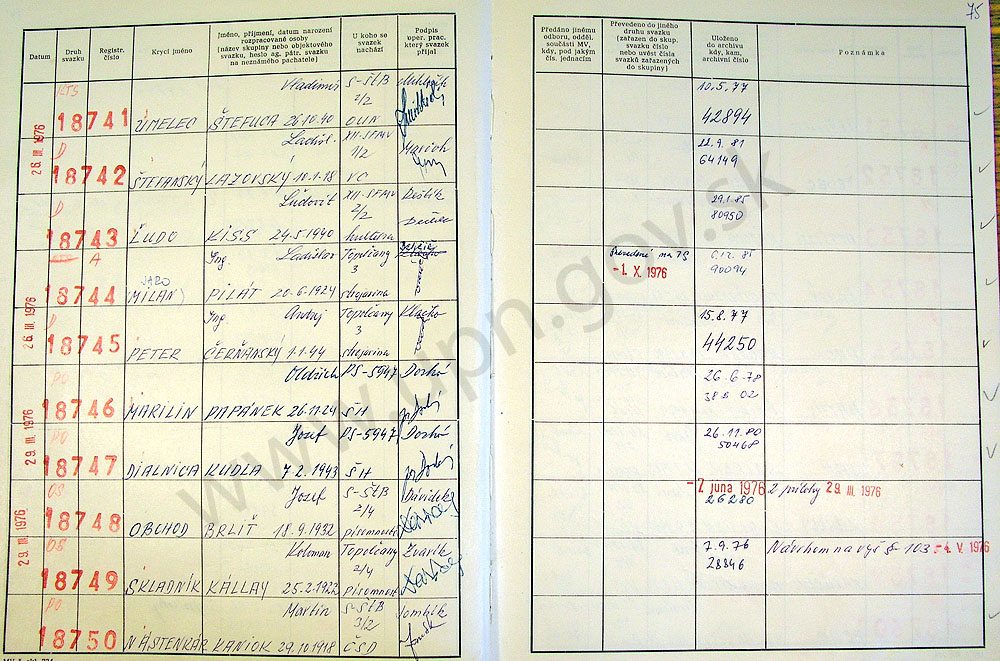 75
Datum
Druh svazku
Registr. číslo
Krycí jméno
Jméno, příjmení, datum narození
rozpracované osoby
(název skupiny nebo objektového
svazku, heslo ag. pátr. svazku
na neznámého pachatele)
U koho se
svazek
nachází
Podpis
oper. prac.
který svazek
přijal
Předáno jinému
odboru, odděl.
součásti MV,
kdy, pod jakým
čís. jednacím
Převedeno do jiného
druhu svazku
(zařazen do skup.
svazku číslo
nebo uvést čísla
svazků zařazených
do skupiny)
Uloženo
do archivu
kdy, kam,
archivní číslo
Poznámka
26. III. 1976
18741 UMELEC Vladimír ŠTEFUCA 26.10.40 S-ŠtB 2/2 OUN
10.5.77
42894
D
18742 ŠTEFANSKÝ Ladisl. LAZOVSKÝ 10.1.18 XII-SFMV 1/2 VC
22.9.81
64149
D
18743 ĽUDO Ľudovít KISS 24.5.1940 XII-SFMV 2/2 kultura
29.1.85
80950
A
18744 JARO (MILAN) Ing. Ladislav PILÁT 20.6.1924 Topoľčany 3 strojarina
Prevedené na TS
-1. X. 1976
90094
26. III. 1976
D
18745 PETER Ing. Andrej ČERŇANSKÝ 1.1.44 Topoľčany 3 strojarina
15.8.77
44250
PO
18746 MARILIN Oldrich PAPÁNEK 26.11.24 PS-5947 ŠH
26.6.78
29. III. 1976
PO
18747 DIALNICA Jozef KUDLA 7.2.1943 PS-5947 ŠH
26.11.80
50468
OS
18748 OBCHOD Jozef BRLIŤ 18.9.1932 S-ŠtB 2/4 písomnosti Dávidek
-2. juna 1976 2 prílohy 29. III. 1976
26280
29. III. 1976
OS
18749 SKLADNÍK Koloman KÁLLAY 25.2.1922 Topoľčany 2/4 písomnosti Zvarík
7.9.76 Návrhom na vyš č. 103 -4. V. 1976
28846
PO
18750 NÁSTENKÁR Martin KANIOK 29.10.1918 S-ŠtB 3/2 ČSD
www.upn.gov.sk